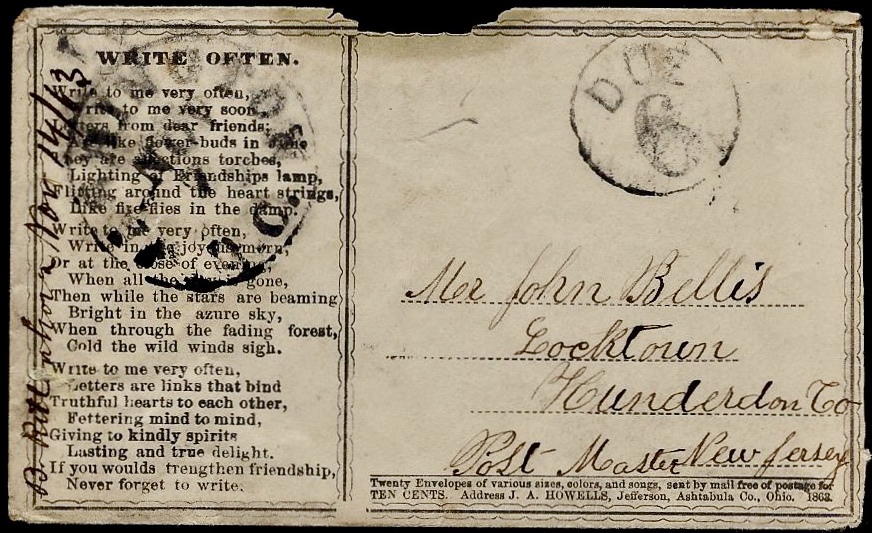 WRITE OFTEN.
Write to me very often,
Write to me very soon,
Letters from dear friends;
Are like flower-buds in June
They are affections torches,
Lighting of Friendships lamp,
Flitting around the heart strings,
Like fire-flies in the damp.
Write to me very often,
Write in the joyous morn,
Or at the close of evening,
When all the day is gone,
Then while the stars are beaming
Bright in the azure sky,
When through the fading forest,
Cold the wild winds sigh.
Write to me very often,
Letters are links that bind
Truthful hearts to each other,
Fettering mind to mind,
Giving to kindly spirits
Lasting and true delight.
If you woulds trengthen friendship,
Never forget to write.
DUE
6
Mr John Bellis
Locktown
Hunderdon Co
Post Master New Jersey
Twenty Envelopes of various sizes, colors, and songs, sent by mail free of postage for
TEN CENTS. Address J. A. HOWELLS, Jefferson, Ashtabula Co., Ohio. 1863.